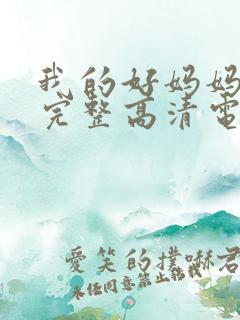 我的好妈妈
完整高清電
愛笑的撲嘛君
未经同意禁止转载